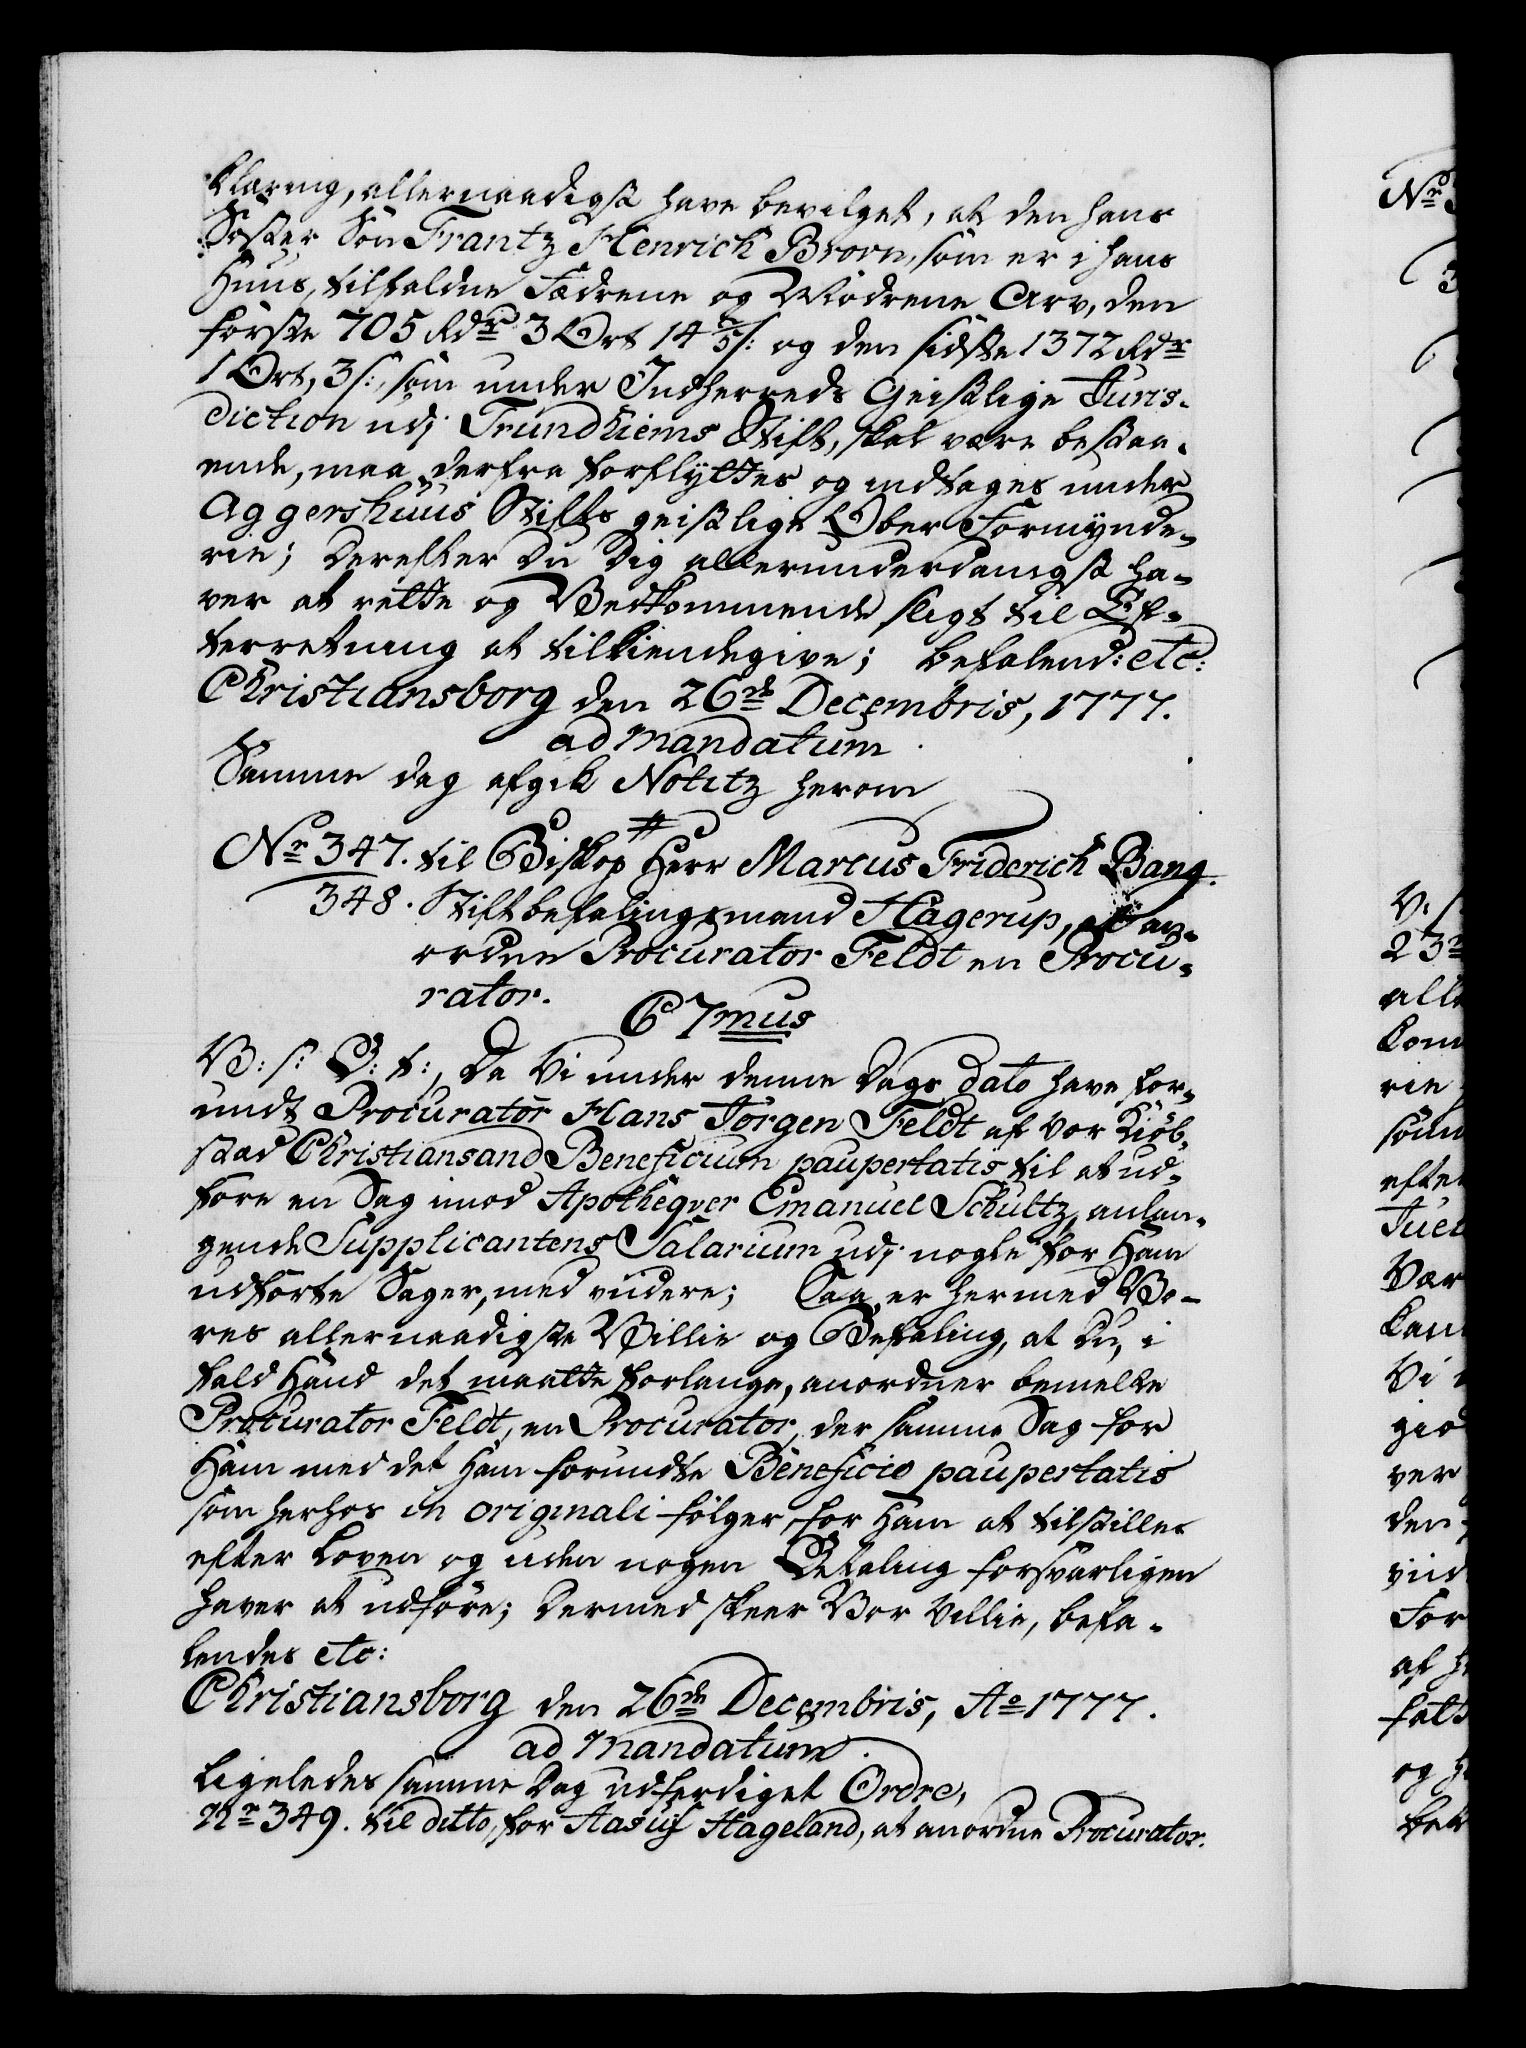 klaring, allernaadigst have bevilget, at den hans
Søster Søn Frantz Henrich Brorn, som er i hans
Huus, tilfaldne Fædrene og Mødrene Arv, den
første 705 Rdr 3 Ort 14 2/5 s: og den sidste 1372 Rdr
1 Ort, 3 s:, som under Indherreds Geistlige Juris-
diction udj Trundhiems Stift, skal være bestaa-
ende, maa derfra forflyttes og indtages under
Aggershuus Stifts geistlige Ober-Formynde-
rie; Derefter Du Dig allerunderdanigst ha-
ver at rette og Vedkommende sligt til Ef-
terretning at tilkiendegive; befalend: etc:
Christiansborg den 26de Decembris, 1777.
ad mandatum
Samme dag afgik Notitz herom
Nr 347. til Biskop Herr Marcus Friderich Bang.
348. Stiftbefalingsmand Hagerup, an-
ordne Procurator Feldt en Procu-
rator.
C 7mus
V: s: G: t:, Da Vi under denne Dags dato have for-
undt Procurator Hans Jørgen Feldt af Vor Kiøb-
stad Christiansand Beneficium paupertatis til at ud-
føre en Sag imod Apotheqver Emanuel Schultz, anlan-
gende Supplicantens Salarium udj nogle for Ham
udførte Sager, med viidere; Saa er hermed Vo-
res allernaadigste Villie og Befaling, at Du, i
fald Hand det maatte forlange, anordner bemelte
Procurator Feldt, en Procurator, der samme Sag for
Ham med det Ham forundte Beneficio paupertatis
som herhos in originali følger, for Ham at tilstilles
efter Loven og uden nogen Betaling forsvarligen
haver at udføre; Dermed skeer Vor Villie, befa-
lendes etc:
Christiansborg den 26de Decembris, Ao 1777.
ad mandatum.
Ligeledes samme Dag udferdiget Ordre,
Nr 349. til ditto, for Hageland, at anordne Procurator.